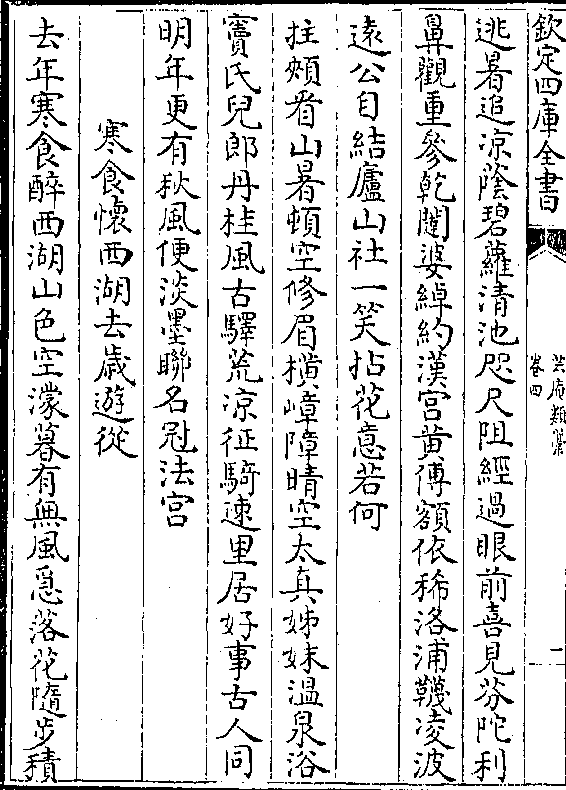 欽定四庫全書
芸庵類藁
卷四
一
逃暑追凉蔭碧蘿清池咫尺阻經過眼前喜見芬陀利
鼻觀重參乾闥婆綽約漢宫黄傅額依稀洛浦韈凌波
逺公自結廬山社一笑拈花意若何
拄頰看山暑頓空修眉横嶂障晴空太真姊妹温泉浴
竇氏兒郎丹桂風古驛荒凉征騎速里居好事古人同
明年更有秋風便淡墨聯名冠法宫
寒食懐西湖去歳遊從
去年寒食醉西湖山色空濛暮有無風急落花隨步積